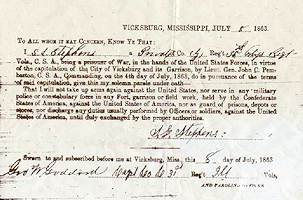 VICKSBURG, MISSISSIPPI, JULY 8, 1863.
TO ALL WHOM IT MAY CONCERN, KNOW YE THAT:
I S. L. Stephens a Private Co. Reg't Miss
Vols., C. S. A., being a prisoner of War, in the hands of the United States Forces, in virtue
of the capitulation of the City of Vicksburg and its Garrison, by Lieut. Gen. John C. Pember-
ton, C. S. A., Commanding, on the 4th day of July, 1863, do in pursuance of the terms
of said capitulation, give this my solemn parole under oath—
That I will not take up arms again against the United States, nor serve in any military
police or constabulary force in any Fort, garrison or field work, held by the Confederate
States of America, against the United States of America, nor as guard of prisons, depots or
stores, nor discharge any duties usually performed by Officers or soldiers, against the United
States of America, until duly exchanged by the proper authorities.
Stephens
Sworn to and subscribed before me at Vicksburg, Miss., this 8 day of July, 1863
Geo W Goddard Capt Co Reg't Ill Vols.,
AND PAROLING OFFICER